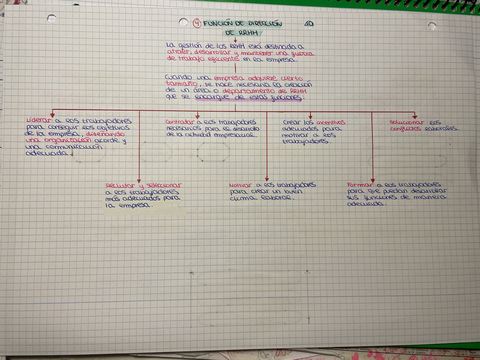 4 FUNCIÓN DE DIRECCIÓN
DE RRHH
La gestión de los RRHH está destinada a
atraer, desarrollar y mantener una fuerza
de trabajo eficiente en la empresa.
Cuando una empresa adquiere cierto
tamaño, se hace necesaria la creación
de un área o departamento de RRHH
que se encargue de estas funciones.
Liderar a los trabajadores
para conseguir los objetivos
de la empresa, diseñando
una organización acorde y
una comunicación
adecuada.
Contratar a los trabajadores
necesarios para el desarrollo
de la actividad empresarial.
Crear los incentivos
adecuados para
motivar a los
trabajadores.
Solucionar los
conflictos laborales.
Reclutar y seleccionar
a los trabajadores
más adecuados para
la empresa.
Motivar a los trabajadores
para crear un buen
clima laboral.
Formar a los trabajadores
para que puedan desarrollar
sus funciones de manera
adecuada.